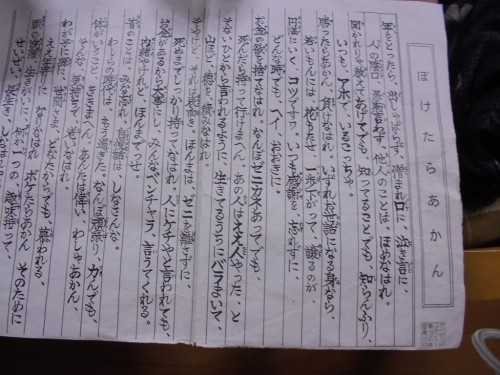 ぼけたらあかん
年をとったら 出しゃばらず 憎まれ口に 泣き言に
人のかげ口 愚痴言わず 他人のことは ほめなはれ
聞かれりゃ教えてあげてでも 知ってることでも 知らんふり
いつも アホで いるこっちゃ
勝ったらあかん 負けなはれ いずれお世話になる身なら
若いもんには 花持たせ 一歩さがって 譲るのが
円満にいく コツですわ いつも感謝を 忘れずに
どんな時でも ヘイ おおきに
お金の欲を 捨てなはれ なんぼゼニカネあってでも
死んだら持って行けまへん あの人はええ人やった と
ないひとから言われるように 生きてるうちにバラまいて
山ほど 徳を 積みなはれ
そやけど それは表向き ほんまは ゼニを離さずに
死ぬまでしっかり 持ってなはれ 人にケチやと言われても
お金があるから大事にし みんなベンチャラ 言うてくれる
内緒やけれど ほんまでっせ
昔のことは みな忘れ 自慢話は しなさんな
わしらの時代は もう過ぎた なんぼ頑張り 力んでも
体がいうこと ききまへん あんたは偉い わしゃあかん
そんな気持ちで おりなはれ
わが子に 孫に 世間さまに どなたからでも 慕われる
ええ年寄りに なりなはれ ボケたらあかん そのために
頭の洗濯 生きがいに 何か一つの 趣味持って
せいぜい 長生き しなはれや